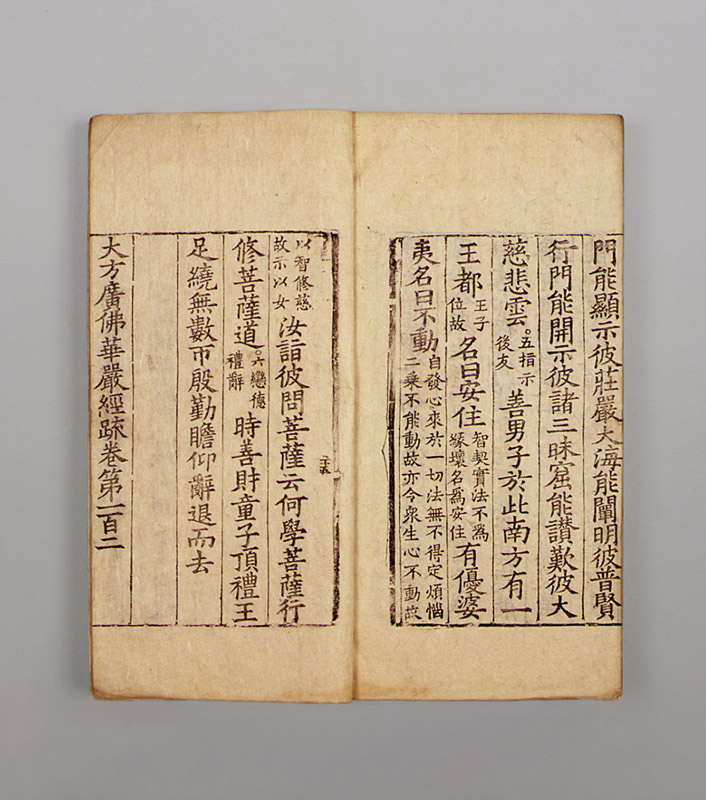 門能顯示彼莊嚴大海能闡明彼普賢
行門能開示彼諸三昧窟能讃歎彼大
慈悲雲。五指示後友善男子於此南方有一
王都王子位故名曰安住智契實法不爲緣壞名爲安住有優婆
夷名曰不動自發心來於一切法無不得定煩惱二乘不能動故亦令衆生心不動故
以智修慈故示以女汝詣彼問菩薩云何學菩薩行
修菩薩道。六戀德禮辭時善財童子頂禮王
足繞無數帀殷勤瞻仰辭退而去
大方廣佛華嚴經䟽卷第一百二